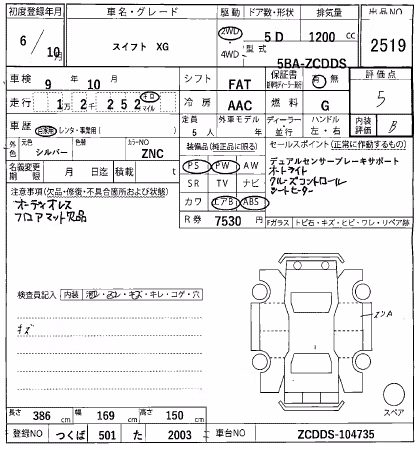 初度登録年月 車名・グレード 駆動 ドア数・形状 排気量 出品NO
6/10月 スイフト XG 2WD 4WD 5D 1200cc 2519
型式 5BA-ZCDDS
車検 9年10月 シフト FAT 保証書 有 無 評価点
走行 1万2千252 キロ マイル 冷房 AAC 燃料 G 5
車歴 自家用 レンタ・事業用( ) 定員 外車モデル ディーラー ハンドル 内装評価 B
5人 年 並行 左・右
外色 元色 色 カラーNO 装備品(純正品に限る) セールスポイント(正常に作動するもの)
シルバー ZNC PS PW AW デュアルセンサーブレーキサポート
名義変更期限 月 日迄 積載 t SR TV ナビ オートライト
カワ エアB ABS クルーズコントロール
シートヒーター
注意事項(欠品・修復・不具合箇所および状態)
オーディオレス
フロアマット欠品
R券 7530円 Fガラス トビ石・キズ・ヒビ・ワレ・リペア跡
検査員記入 内装 キレ・コゲ・穴
キズ
スペア
長さ 386cm 幅 169cm 高さ 150cm
登録NO つくば 501 た 2003 車台NO ZCDDS-104735